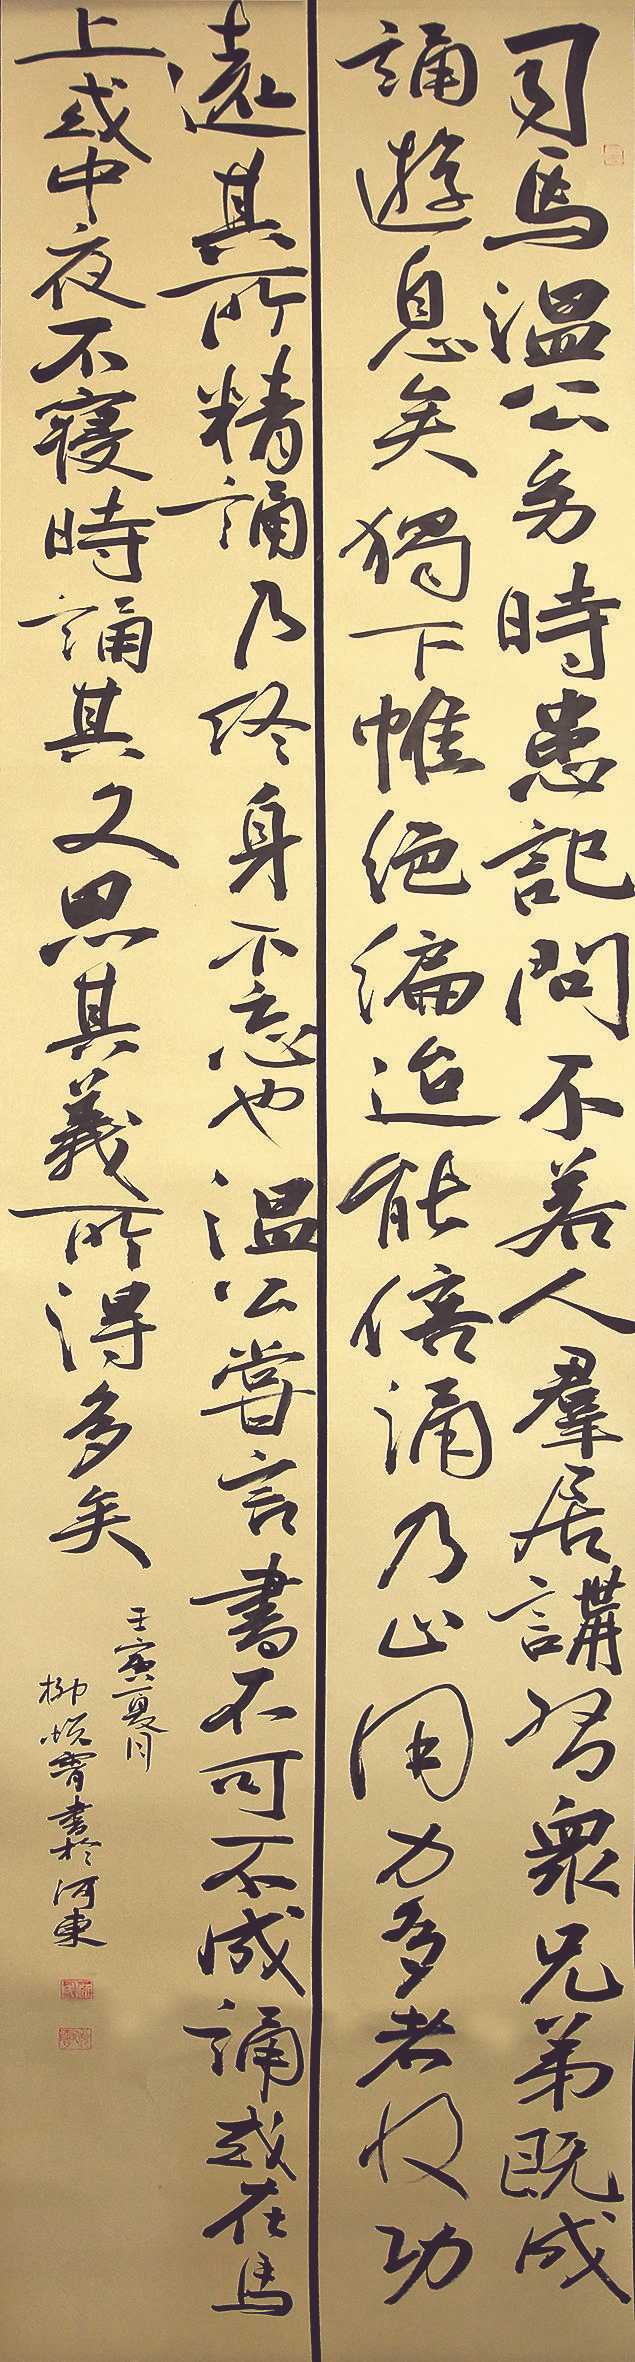 司馬温公幼時患記問不若人羣居講習衆兄弟既成
誦遊息矣獨下帷绝編迨能倍诵乃止用力多者收功
遠其所精誦乃终身不忘也温公嘗言書不可不成誦或在馬
上或中夜不寝時誦其文思其義所得多矣
壬寅夏月
柳 霄書於河東